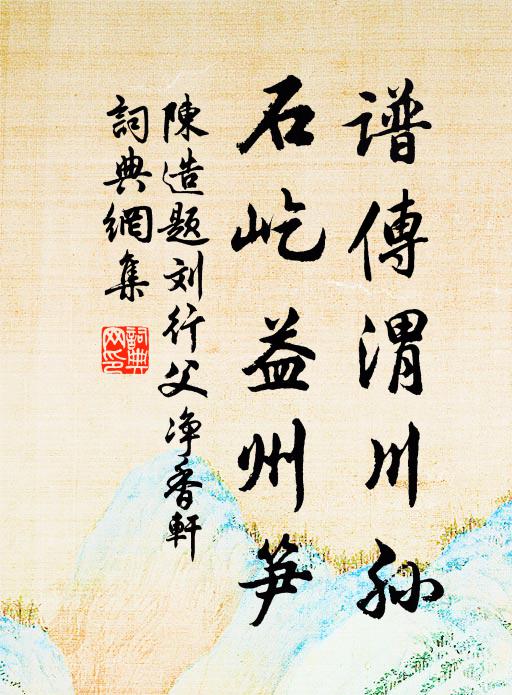 谱傳渭川孙
石屹益州笋
陳造题刘行父净香軒
詞典網集
詞典网印